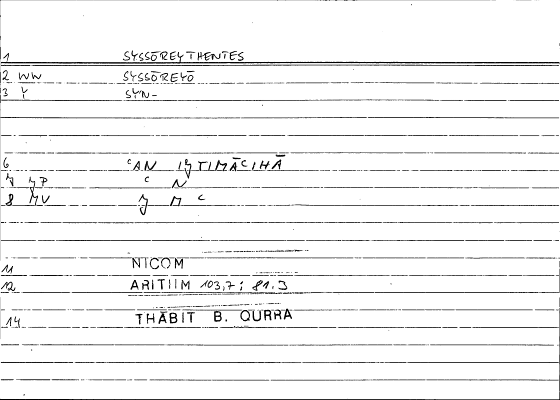 1 SYSSŌREYTHENTES
2 WW SYSSŌREYŌ
3 Y SYN-
6 ᶜAN IǦTIMĀᶜIHĀ
7 ǦP ᶜ N
8 MV Ǧ M ᶜ
11 NICOM
12 ARITIIM 103,7; 81.3
14 THĀBIT B. QURRA